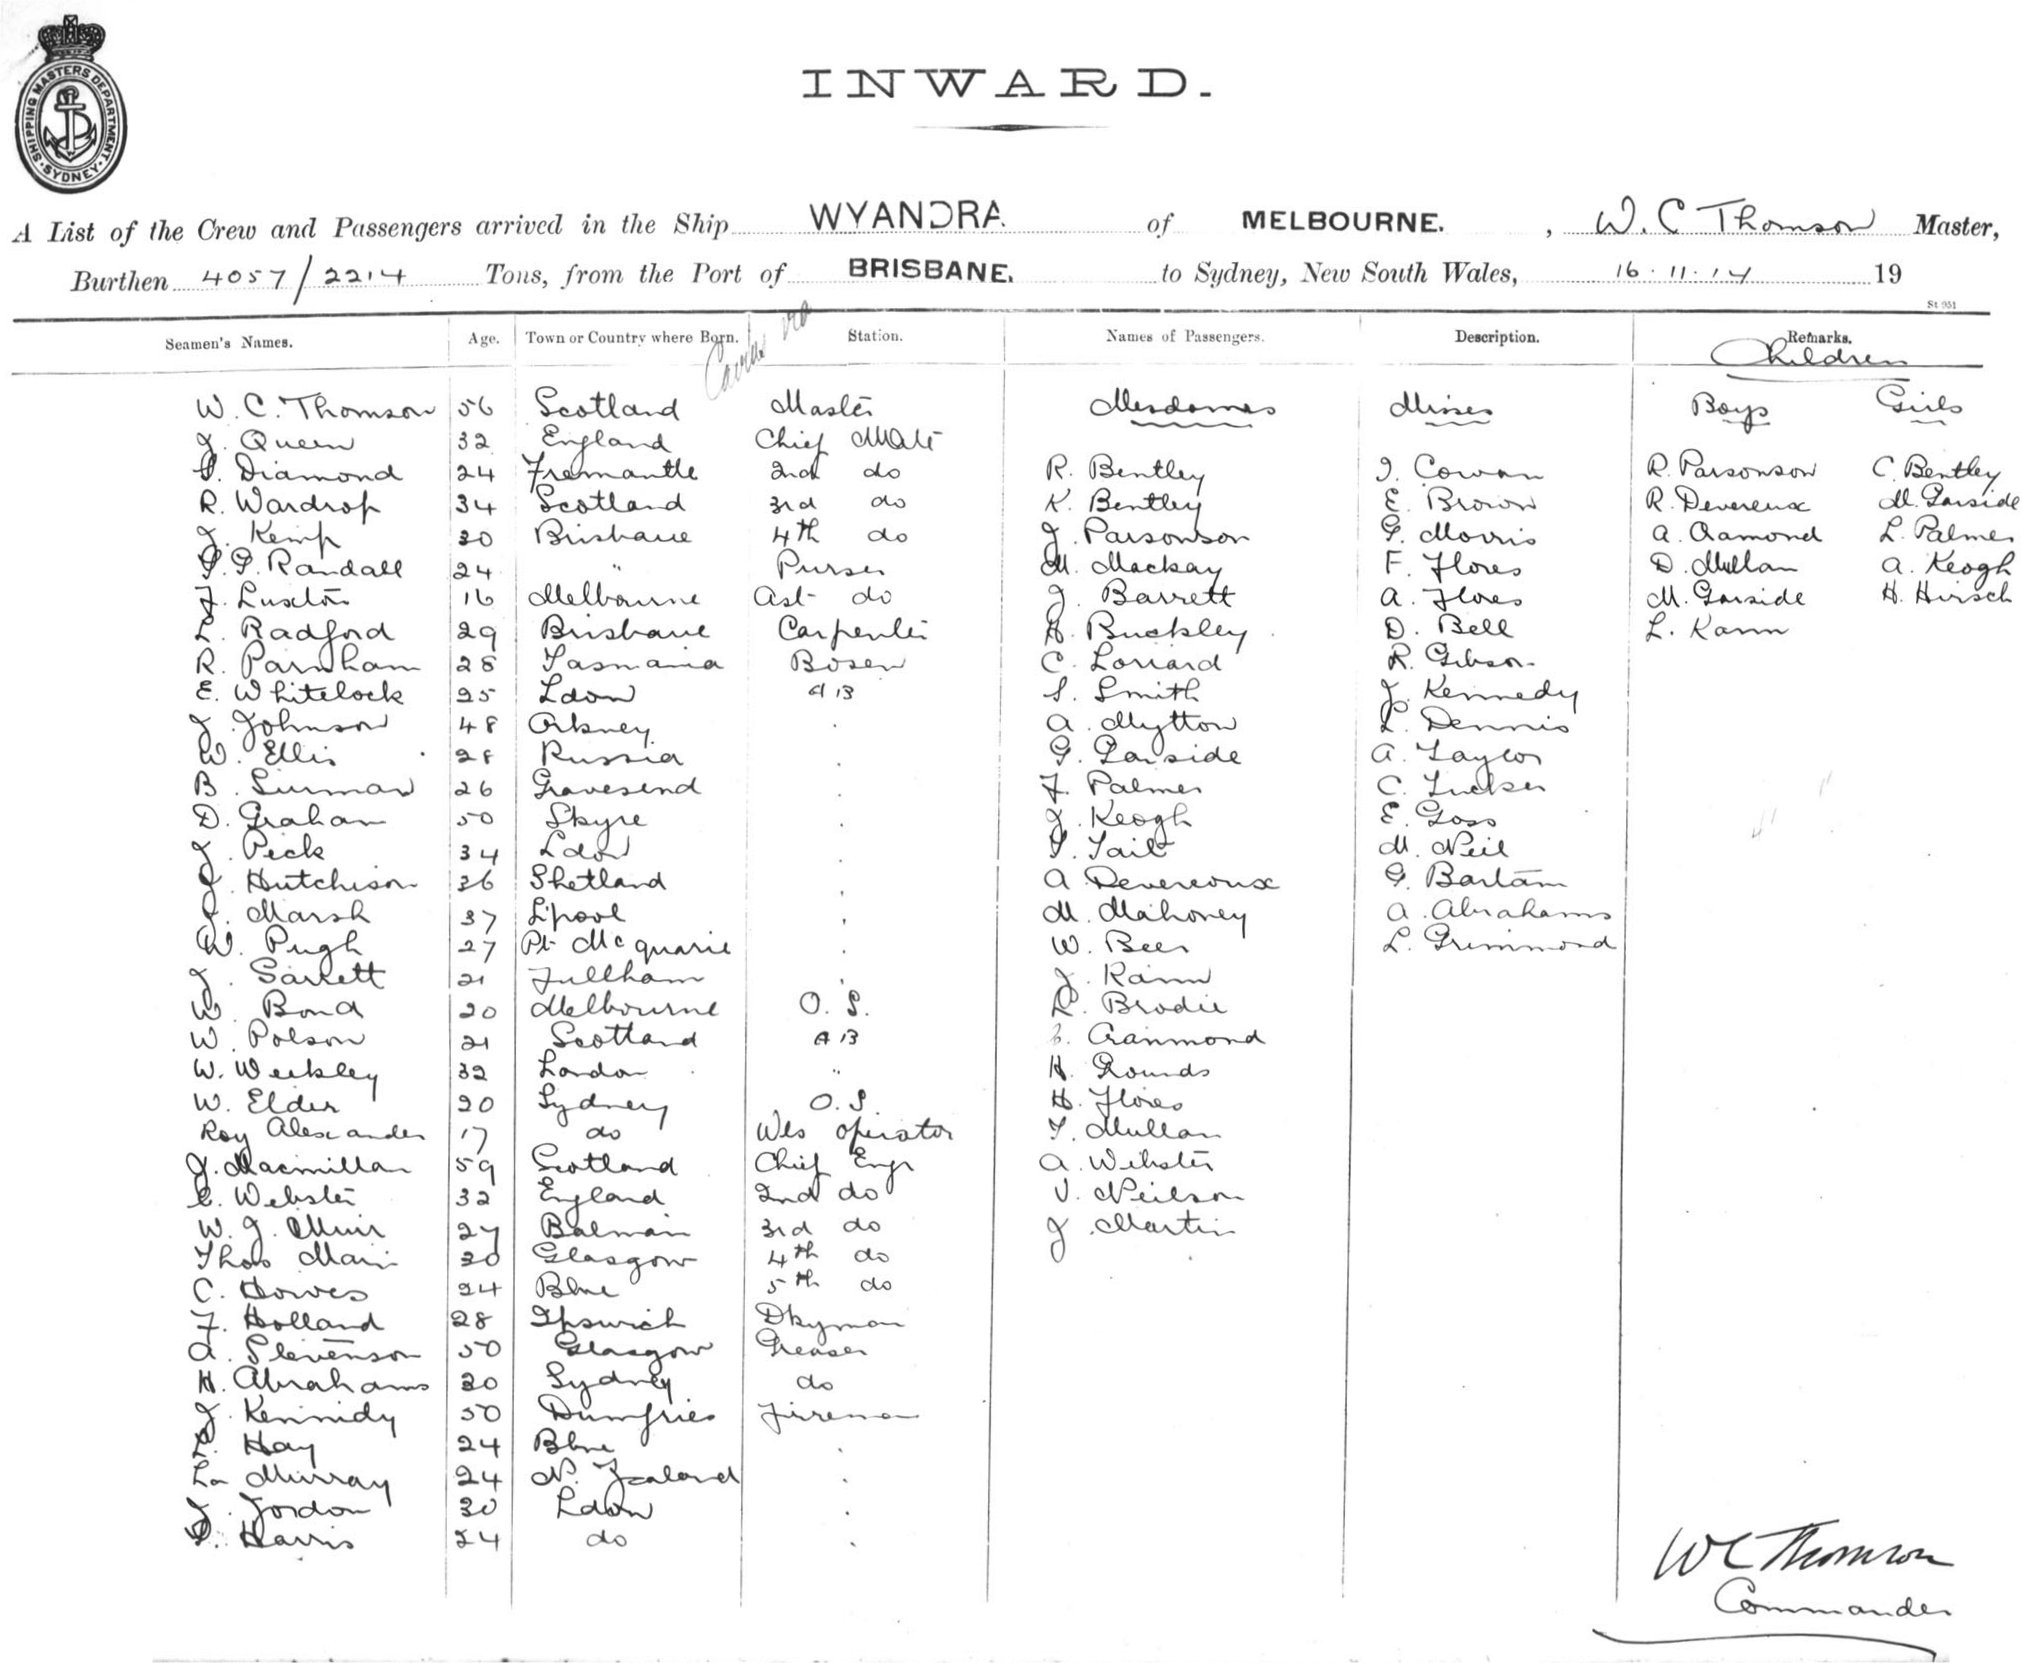 SHIPPING MASTERS DEPARTMENT
SYDNEY
INWARD.
A List of the Crew and Passengers arrived in the Ship WYANDRA. of MELBOURNE. , W. C Thomson Master,
Burthen 4057/2214 Tons, from the Port of BRISBANE. to Sydney, New South Wales, 16.11.14 19
St 951
Seamen's Names. Age. Town or Country where Born. Station. Names of Passengers. Description. Remarks.
Children
W. C. Thomson 56 Scotland Master Mesdames Misses Boys Girls
J. Queen 32 England Chief Mate
Diamond 24 Fremantle 2nd do R. Bentley I. Cowan R. Parsonson C. Bentley
R. Wardrop 34 Scotland 3rd do K. Bentley E. Brown R. Devereux M. Garside
J. Kemp 30 Brisbane 4th do J. Parsonson G. Morris A. Cramond L. Palmer
Randall 24 " Purser M. Mackay F. Flores D. Mullan A. Keogh
F. Luxton 16 Melbourne Ast do J. Barrett A. Flores M. Garside H. Hirsch
Radford 29 Brisbane Carpenter H. Buckley D. Bell L. Kann
R. Parnham 28 Tasmania Bosen C. Lorrard R. Gibson
E. Whitelock 25 Ldon AB S. Smith J. Kennedy
J. Johnson 48 Orkney . A. Mytton L. Dennis
W. Ellis 28 Russia . G. Garside A. Taylor
B. Surman 26 Gravesend . F. Palmer C. Tucker
D. Graham 50 Skyre . J. Keogh E. Goss
J. Peck 34 Ldon . Tait M. Neil
J. Hutchison 36 Shetland . A Devereoux G. Bartam
J. Marsh 37 L'pool . M. Mahoney A. Abrahams
W. Pugh 27 Pt McQuarie . W. Beer L. Grimmond
J. Garrett 21 Fullham . J. Kann
W. Bond 20 Melbourne O. S. R. Brodie
W. Polson 21 Scotland AB Cranmond
W. Weekley 32 London " H. Rounds
W. Elder 20 Sydney O. S. H. Flores
Roy Alexander 17 do Wls operator T. Mullan
J. Macmillan 59 Scotland Chief Engr A. Webster
C. Webster 32 England 2nd do V. Neilson
W. J. Muir 27 Balmain 3rd do J. Martin
Thos Main 30 Glasgow 4th do
C. Howes 24 Blne 5th do
F. Holland 28 Ipswich Dkyman
A. Stevenson 50 Glasgow Greaser
H. Abrahams 30 Sydney do
J. Kennidy 50 Dumfries Fireman
Hay 24 Blne .
Murray 24 N. Zealand .
J. Jordon 30 Ldon .
Harris 24 do .
W C Thomson
Commander